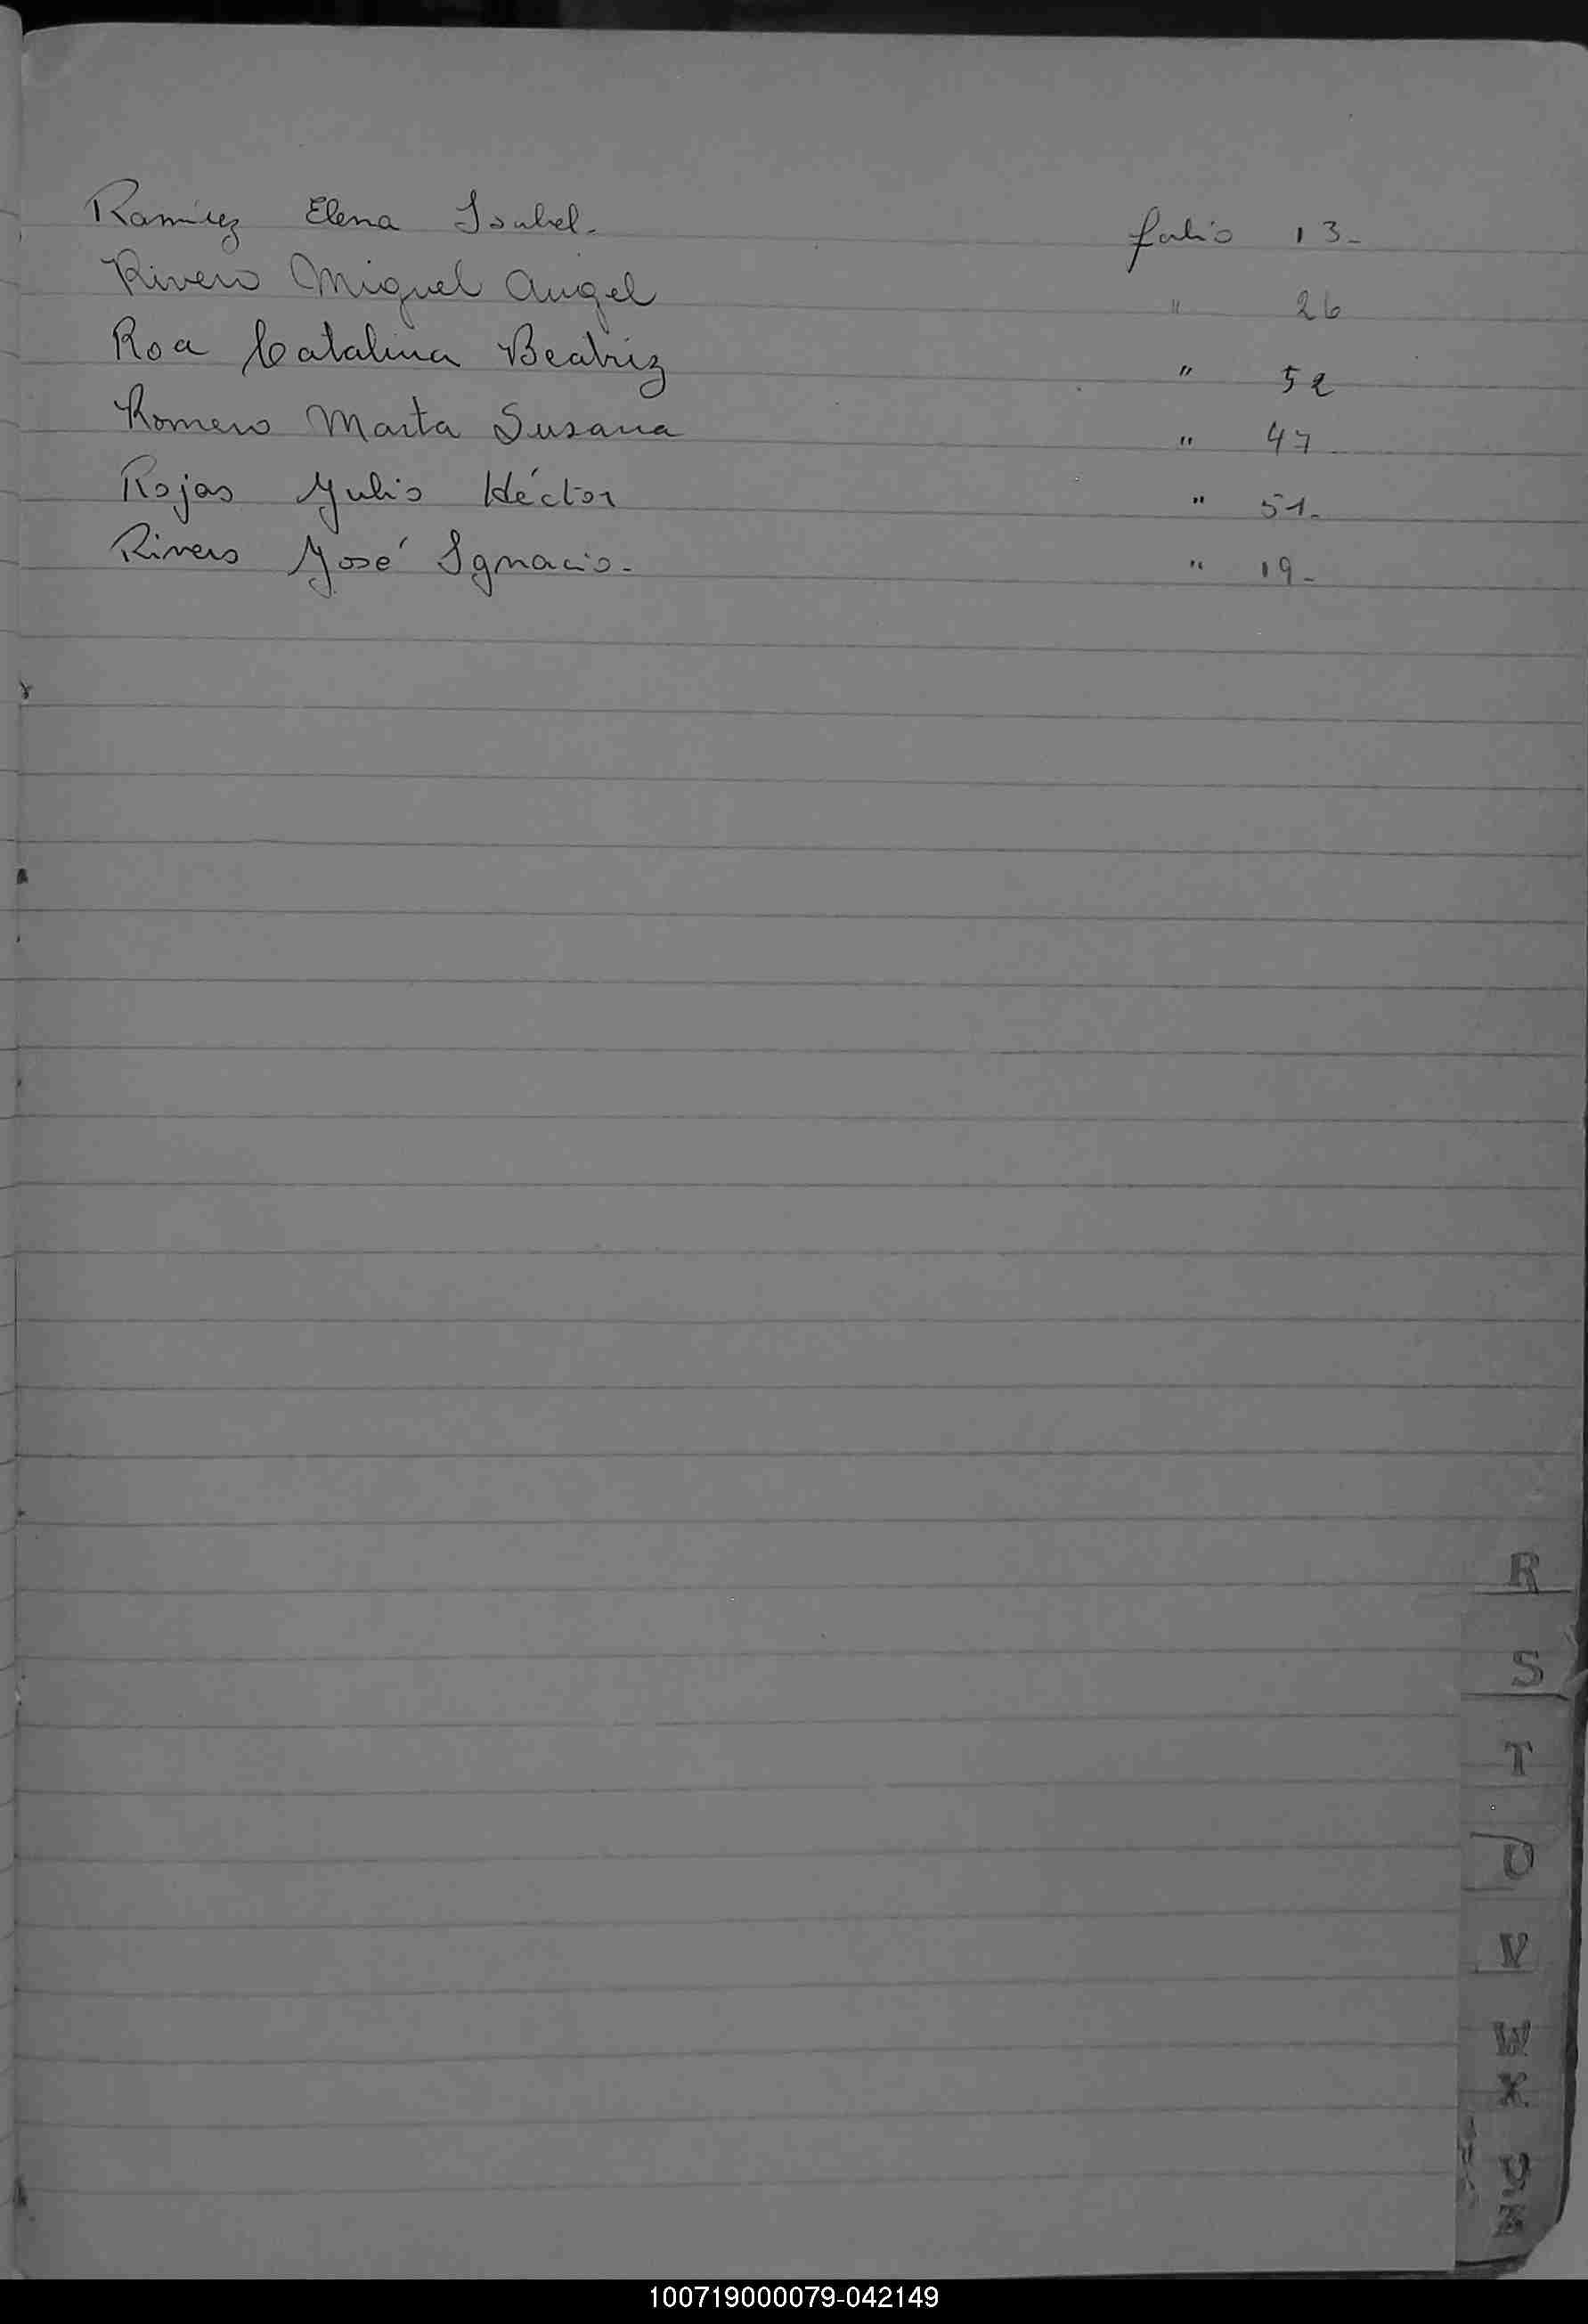 Ramírez Elena Isabel. folio 13-
Rivero Miguel Angel " 26
Roa Catalina Beatriz " 52
Romero Marta Susana " 47
Rojas Julio Héctor " 51-
Rivero José Ignacio- " 19-
R
S
T
U
V
W
X
Y
Z
100719000079-042149